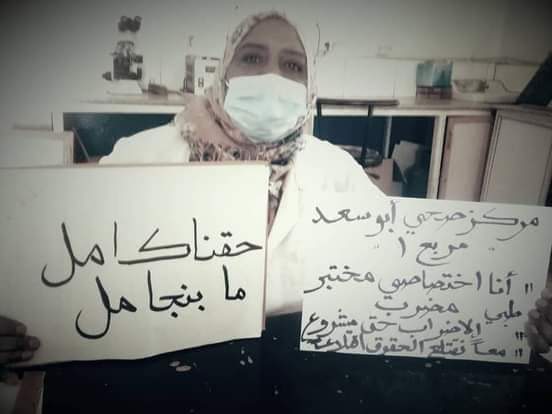 حقنا كامل
ما بنجامل
مركز صحي أبو سعد
مربع ١
" أنا اختصاصي مختبر
طبي مضرب
الاضراب حق مشروع "
" معاً ننتلع الحقوق اقتلاعاً